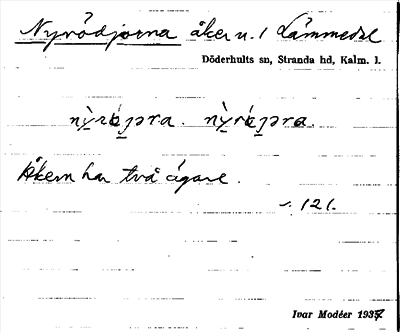 Nyrödjorna åker n. 1 Lämmedal
Döderhults sn, Stranda hd, Kalm. l.
Åkern har två ägare.
s. 121.
Ivar Modéer 1937